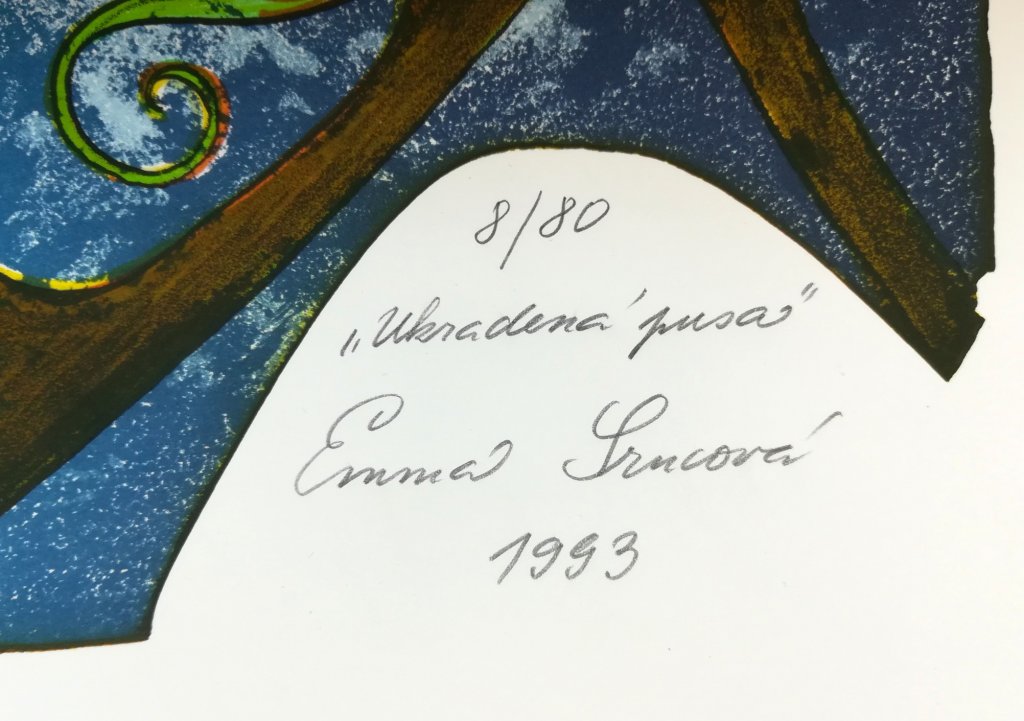 8/80
„Ukradená pusa"
Emma Srncová
1993